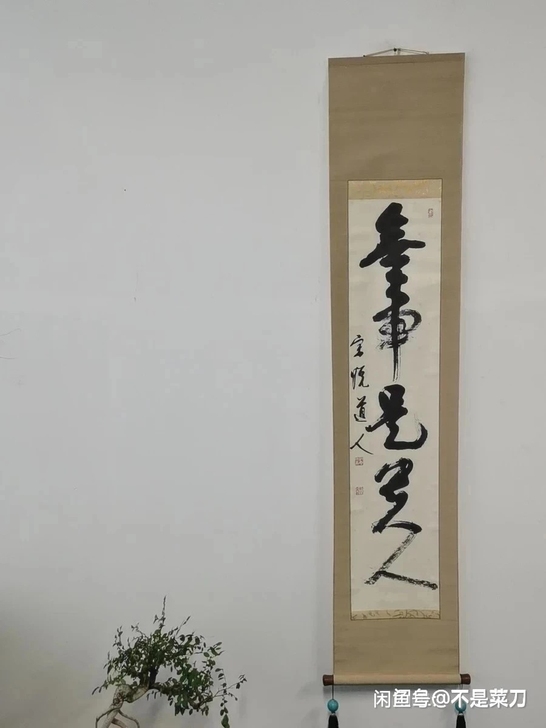 無事是貴人
宗道人
闲鱼号@不是菜刀